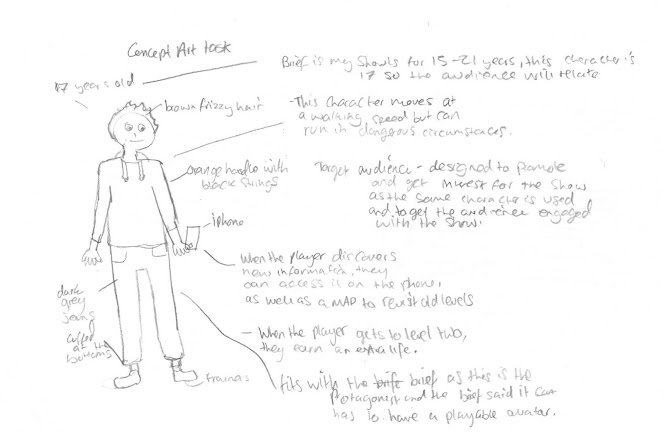 Concept Art task
Brief is my Show is for 15-21 years, this character is
17 so the audience will relate
17 years old
brown frizzy hair
- This character moves at
a walking speed but can
run in dangerous circumstances.
orange hoodie with
black strings
Target audience - designed to promote
and get interest for the show
as the same character is used
and to get the audience engaged
with the show.
iphone
when the player discovers
new information, they
can access it on the phone,
as well as a MAP to revisit old levels
dark
grey
jeans
cuffed
at the
bottoms
- When the player gets to level two,
they earn an extra life.
fits with the brief as this is the
Protagonist and the brief said it
has to have a playable avatar.